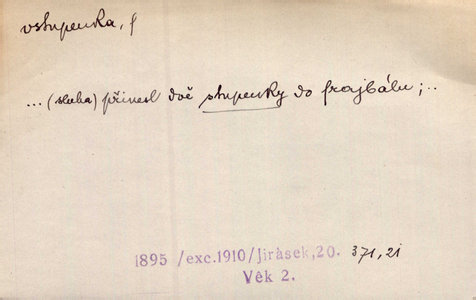 vstupenka, f
... (sluha) přinesl dvě stupenky do frajbálu; ..
1895 /exc.1910/Jirásek,20. 371,21
Věk 2.